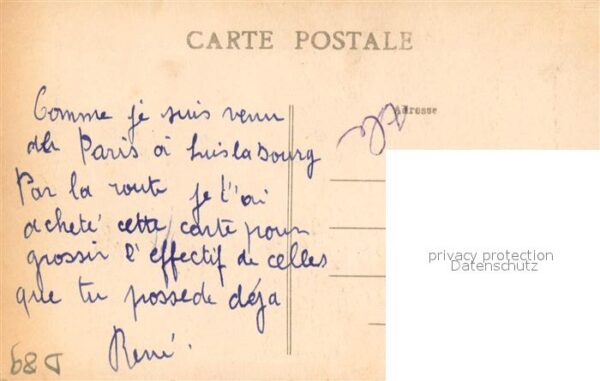 CARTE POSTALE
Adresse
Comme je suis venu
de Paris à Luislabourg
Par la route je t'ai
acheté cette carte pour
grossir l'effectif de celles
que tu possede déja
René.
privacy protection
Datenschutz
D89